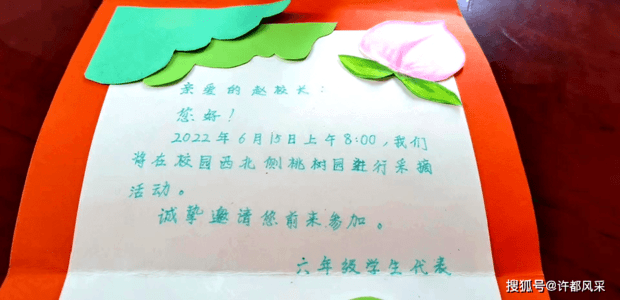 亲爱的赵校长：
您好！
2022年6月15日上午8:00，我们
将在校园西北侧桃树园进行采摘
活动。
诚挚邀请您前来参加。
六年级学生代表
搜狐号@许都风采